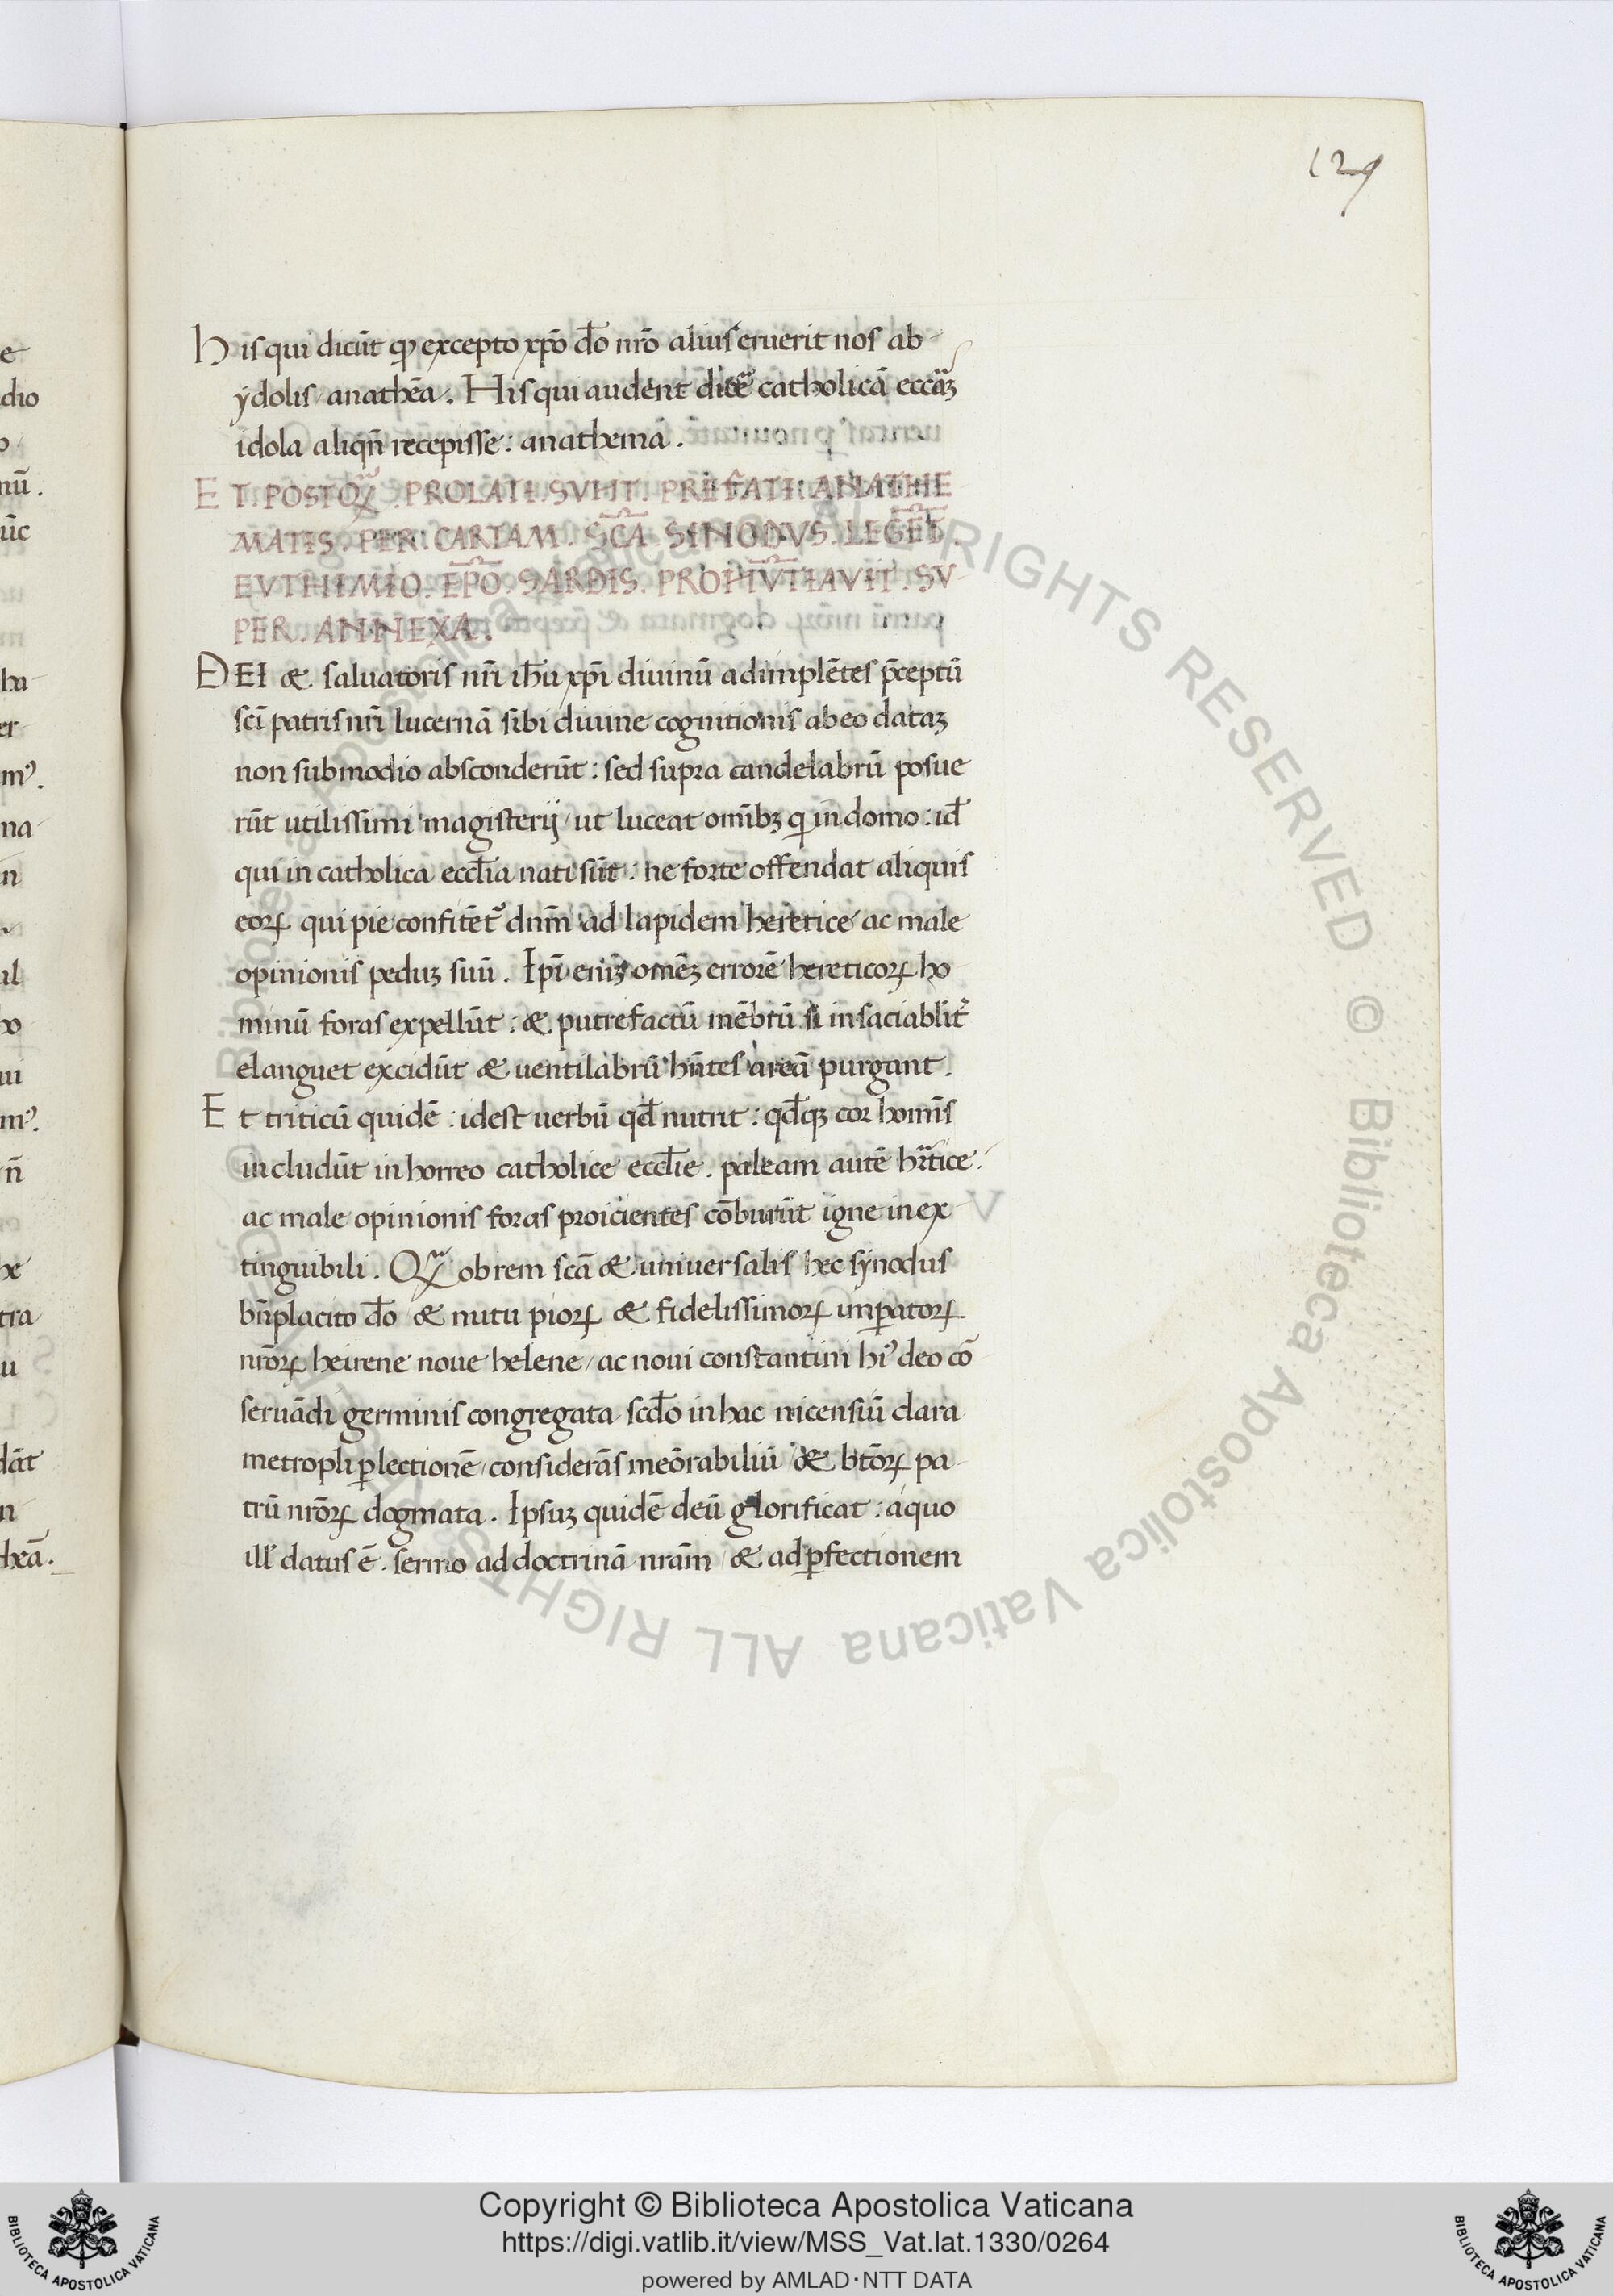 129
His qui dicūt qđ excepto xp̄o đo nr̄o alius eruerit nos ab
ydolis anathēa. His qui audent dicē catholicā eccāꝫ
idola aliqn̄ recepisse: anathema.
ET. POSTQ̃. PROLATI. SVNT. PREFATI. ANATHE
MATIS. PER. CARTAM. SC̄A. SINODVS. LEGĒT.
EVTHIMIO. EP̄O. SARDIS. PRONV̄TIAVIT. SV
PER. ANNEXA.
DEI & saluatoris nr̄i ih̄u xp̄i diuinū adimplētes p̄ceptū
sc̄i patris nr̄i lucernā sibi diuine cognitionis ab eo dataꝫ
non sub modio absconderūt: sed supra candelabrū posue
rūt utilissimi magisterij ut luceat om̄ibꝫ q in domo: id̄
qui in catholica eccl̄ia nati sūt: ne forte offendat aliquis
eoꝝ qui pie confitēt᷑ dn̄m ad lapidem heretice ac male
opinionis peduꝫ suū. Ip̄i eniꝫ omēꝫ errorē hereticoꝝ ho
minū foras expellūt: & putrefactū mēbrū si insaciablit᷑
elanguet excidūt & uentilabrū hn̄tes areā purgant.
Et triticū quidē: idest uerbū qđ nutrit: qđqꝫ cor homīs
includūt in horreo catholice eccl̄ie. paleam autē hr̄tice
ac male opinionis foras proicientes cōburūt igne inex
tinguibili. Q̃obrem sc̄a & uniuersalis hec synodus
bn̄placito đo & nutu pioꝝ & fidelissimoꝝ imꝑatoꝝ
nr̄oꝝ heirene noue helene ac noui constantini hi᾽ deo cō
seruādi germinis congregata scđo in hac nicensiū clara
metropli ꝑlectionē considerās meōrabiliū & btōꝝ pa
trū nr̄oꝝ dogmata. Ipsuꝫ quidē deū glorificat: a quo
ill᾽ datus ē. sermo ad doctrinā nrām & ad ꝑfectionem
e
dio
nū.
ūc
ha
er
m᾽.
na
n
ul
ho
ui
m᾽.
n̄
he
tra
u
dāt
n
theā.
© Biblioteca Apostolica Vaticana ALL RIGHTS RESERVED © Biblioteca Apostolica Vaticana ALL RIGHTS RESERVED
Copyright © Biblioteca Apostolica Vaticana
https://digi.vatlib.it/view/MSS_Vat.lat.1330/0264
powered by AMLAD·NTT DATA
BIBLIOTECA APOSTOLICA VATICANA
BIBLIOTECA APOSTOLICA VATICANA